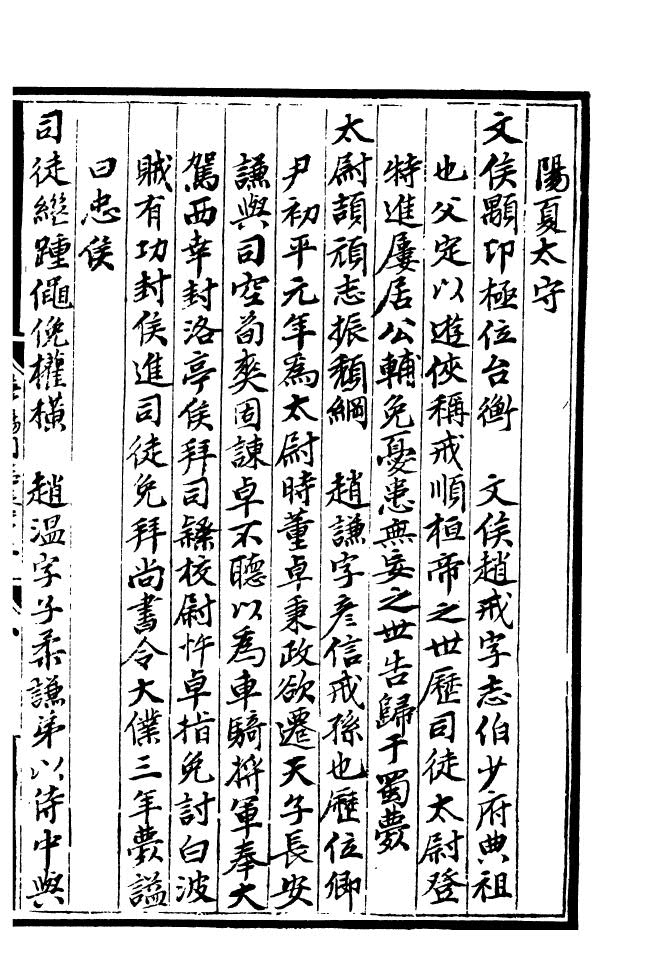 陽夏太守
文侯顯印極位台衡　文侯趙戒字志伯少府典祖
也父定以遊俠稱戒順桓帝之世歷司徒太尉登
特進屢居公輔免憂患無妄之世告歸于蜀薨
太尉頡頏志振頹綱　趙謙字彥信戒孫也歷位卿
尹初平元年為太尉時董卓秉政欲遷天子長安
謙與司空荀爽固諫卓不聽以為車騎将軍奉大
駕西幸封洛亭侯拜司隸校尉忤卓指免討白波
賊有功封侯進司徒免拜尚書令大僕三年薨諡
曰忠侯
司徒繼踵僶俛權橫　趙溫字子柔謙弟以侍中與